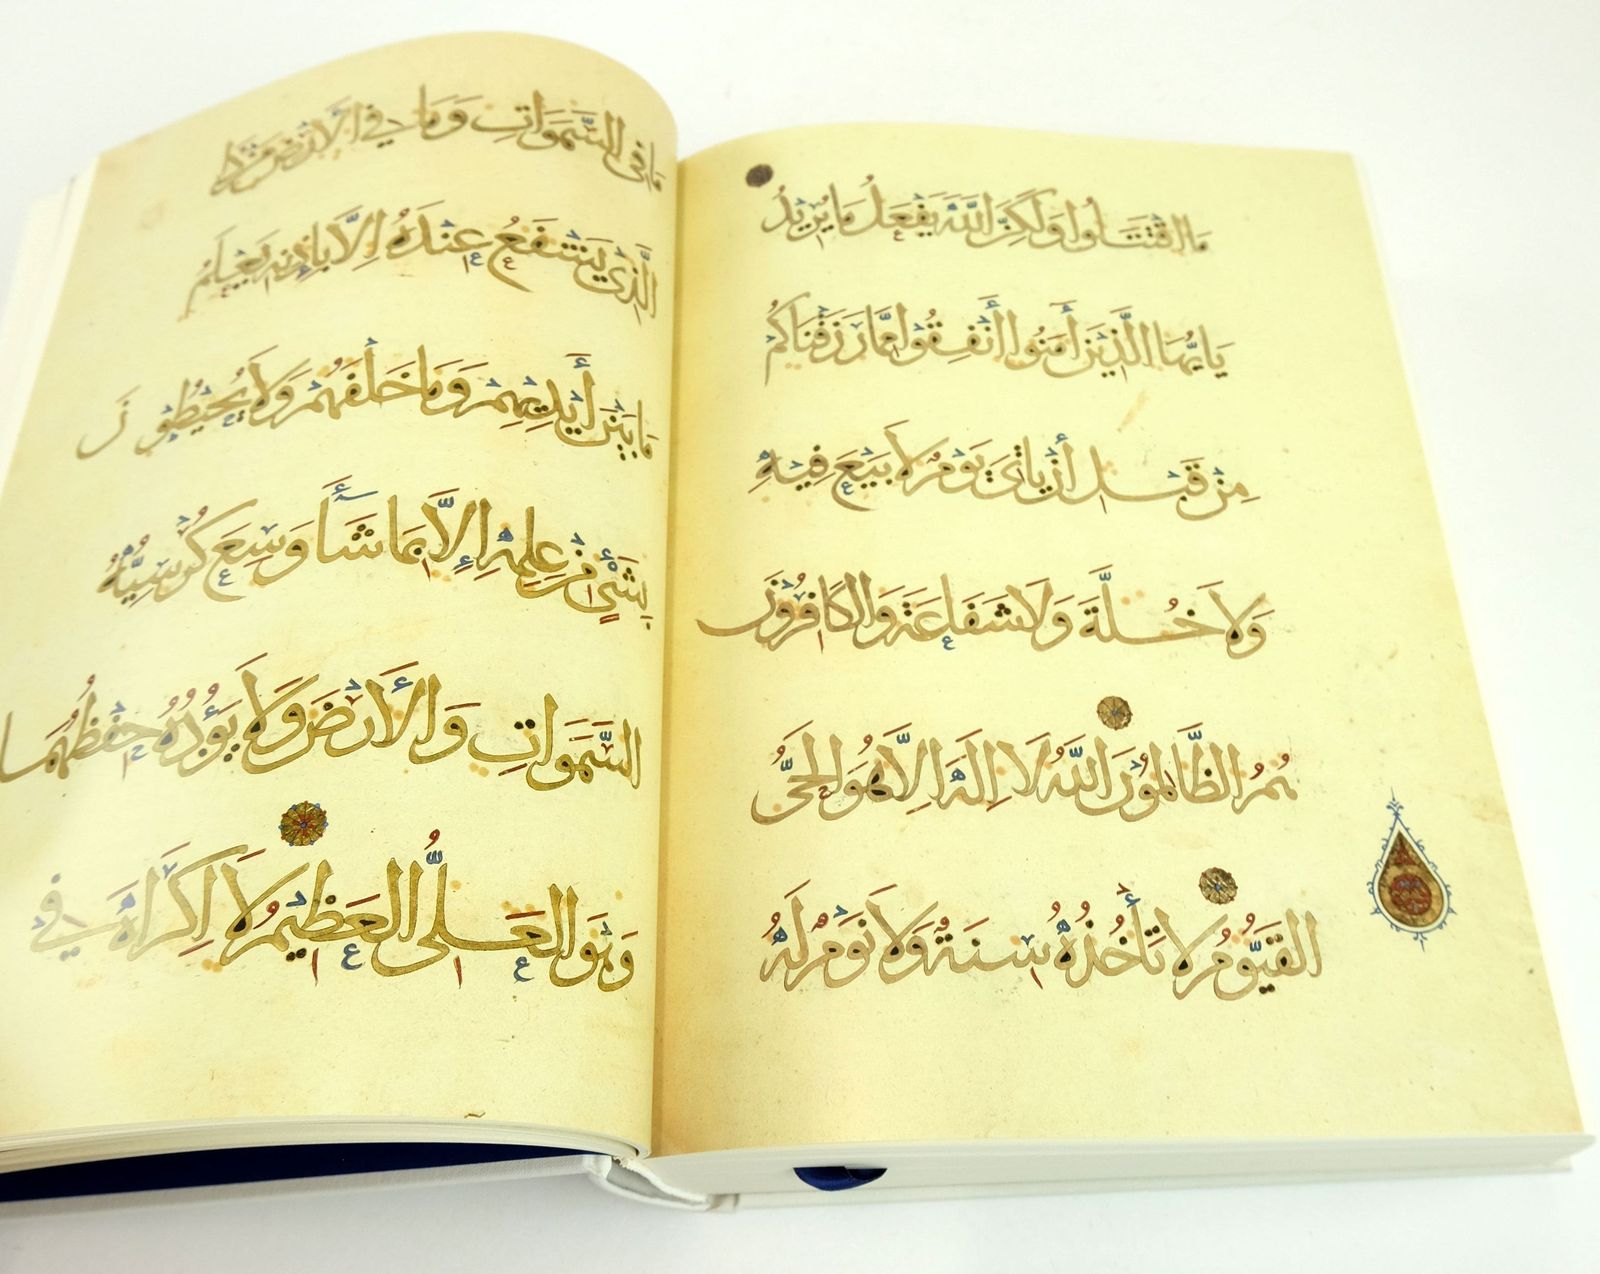 ما اقتتلوا ولكن الله يفعل ما يريد
يا يها الذين أمنوا أنفقوا مما رزقناكم
من قبل أن يأتي يوم لا بيع فيه
ولا خلة ولا شفاعة والكافرون
هم الظالمون الله لا إله إلا هو الحي
القيوم لا تأخذه سنة ولا نوم له
ما في السموات وما في الأرض من ذا
الذي يشفع عنده إلا بإذنه يعلم
ما بين أيديهم وما خلفهم ولا يحيطون
بشيء من علمه إلا بما شأ وسع كرسيه
السموات والأرض ولا يؤده حفظهما
وهو العلي العظيم لا إكراه في